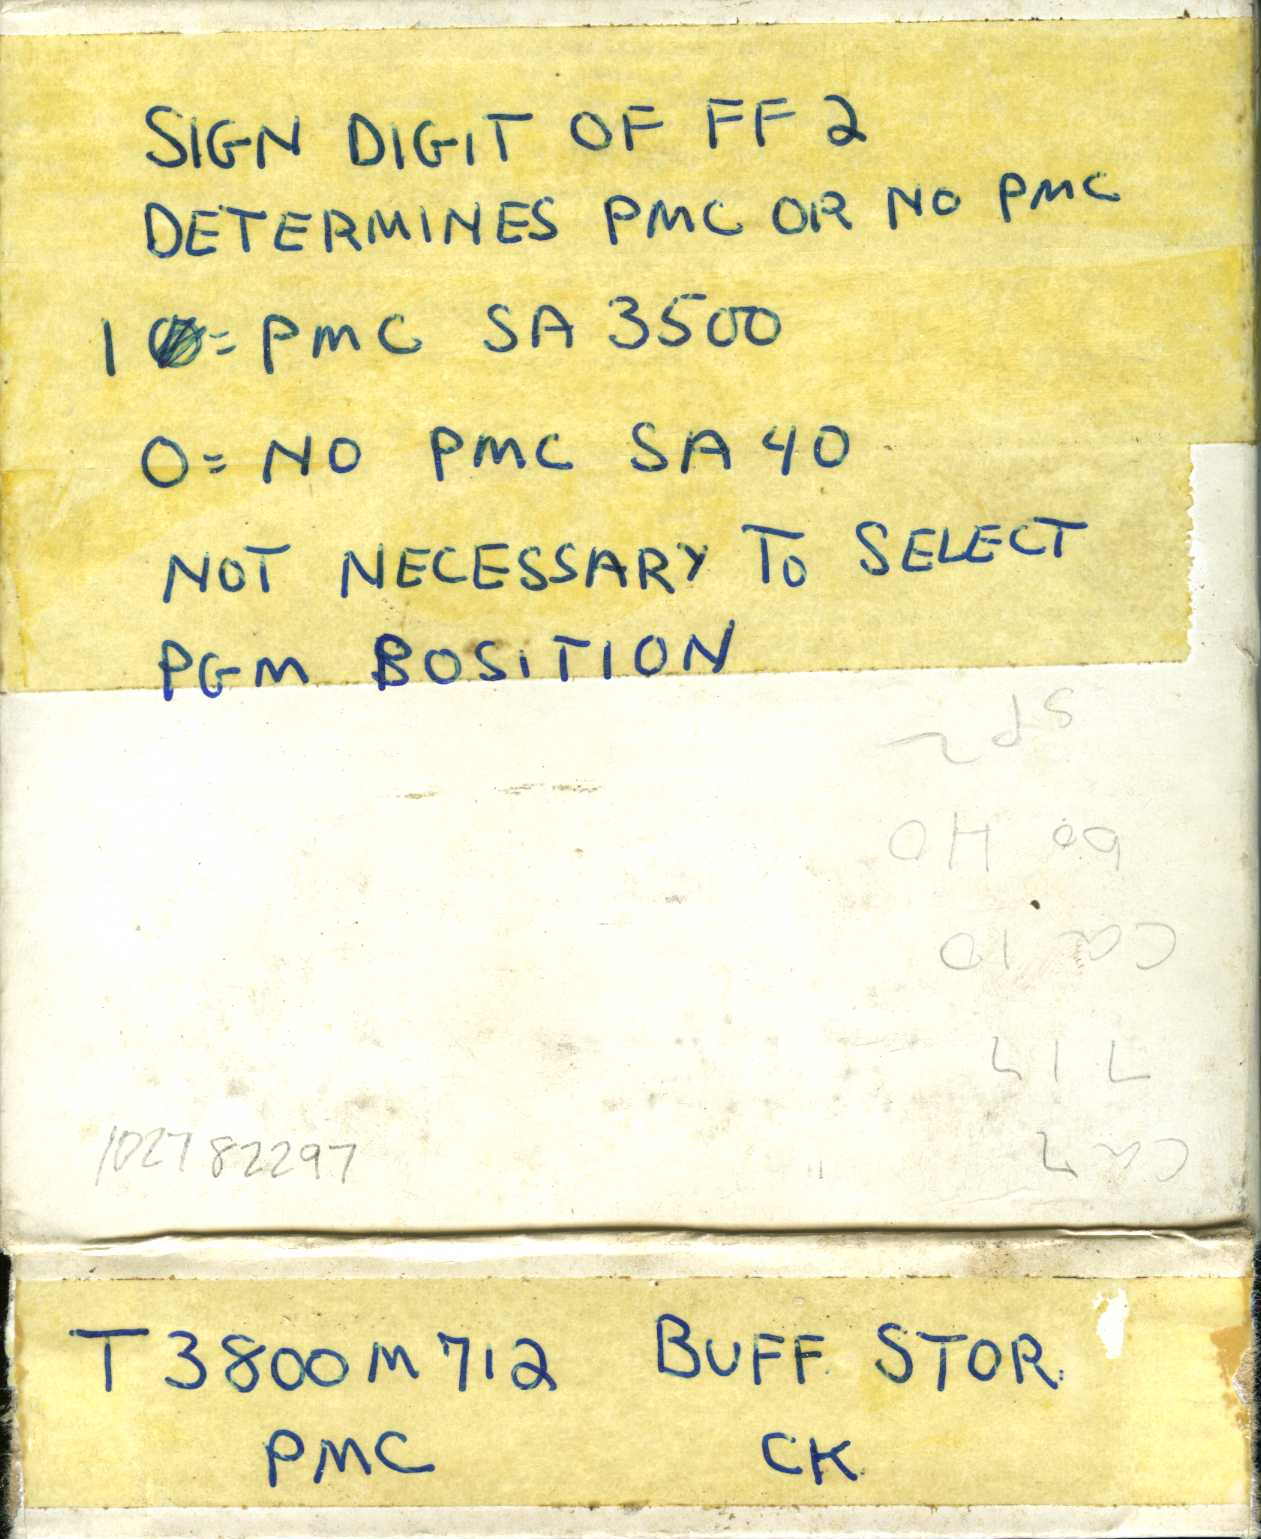 SIGN DIGIT OF FF 2
DETERMINES PMC OR NO PMC
1 = PMC SA 3500
0 = NO PMC SA 40
NOT NECESSARY TO SELECT
PGM BOSITION
102782297
T3800M712 BUFF. STOR.
PMC CK.